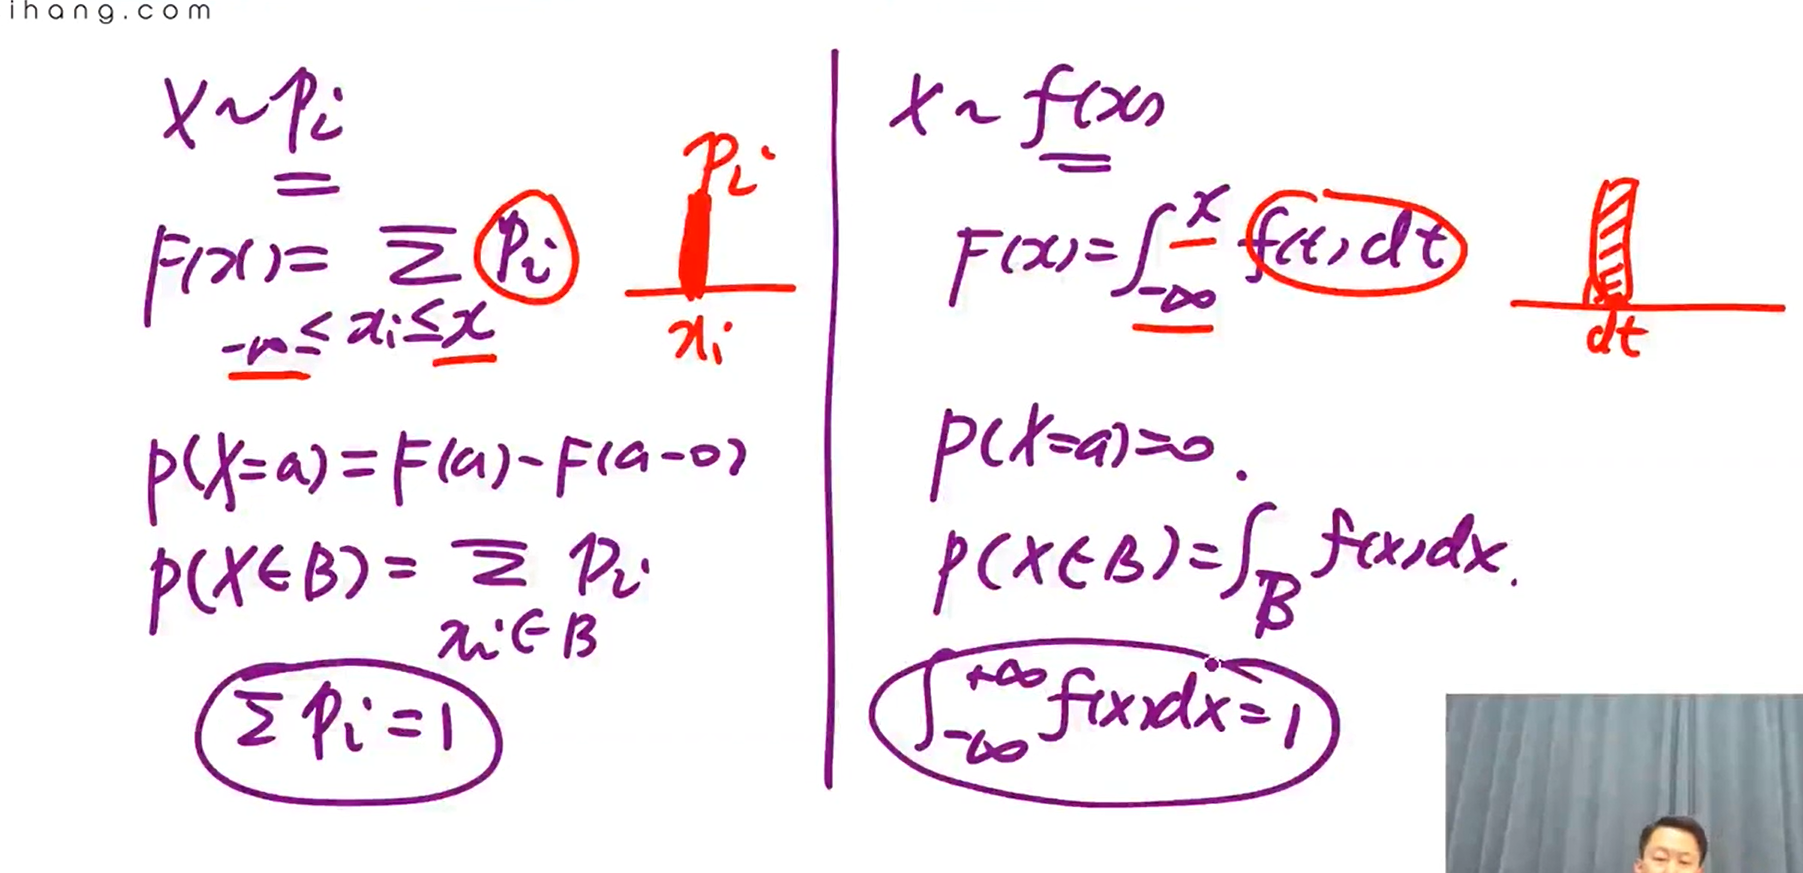 ihang.com
X ~ pᵢ
F(x) = Σ pᵢ
-∞ ≤ xᵢ ≤ x
pᵢ
xᵢ
P(X=a) = F(a) - F(a-0)
P(X∈B) = Σ pᵢ
xᵢ∈B
Σ pᵢ = 1
X ~ f(x)
F(x) = ∫_{-∞}^{x} f(t)dt
dt
P(X=a)=0.
P(X∈B) = ∫_B f(x)dx.
∫_{-∞}^{+∞} f(x)dx = 1